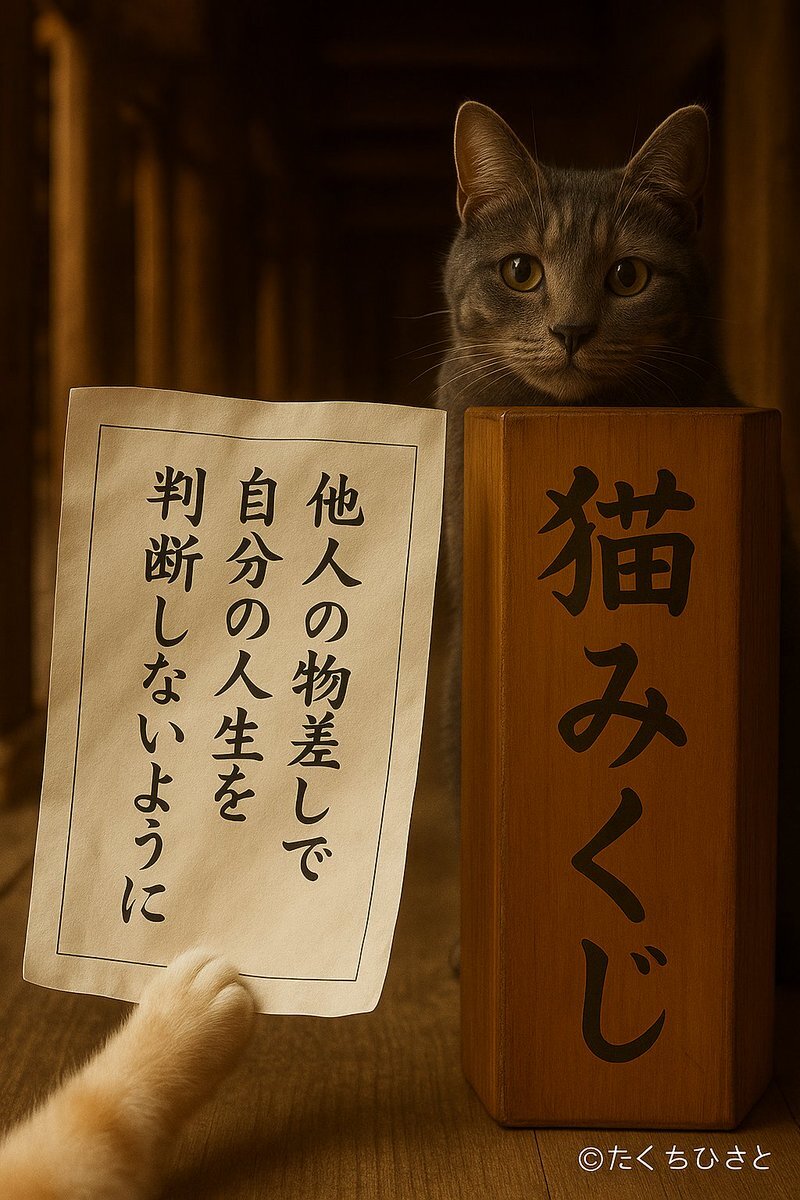 他人の物差しで
自分の人生を
判断しないように
猫みくじ
©たくちひさと